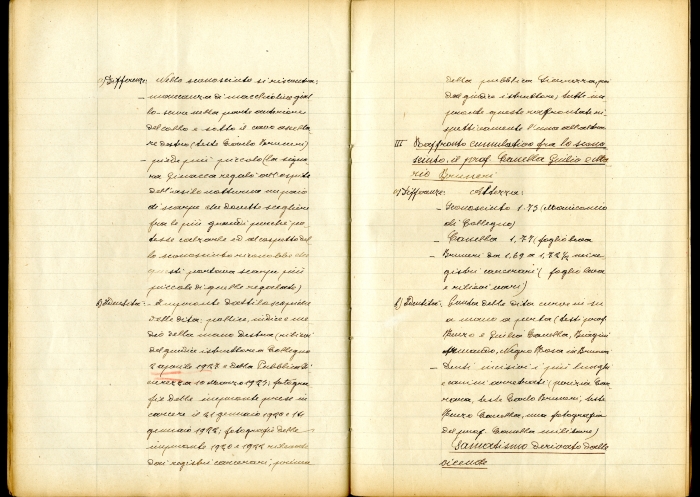 a) Differenze: Nello sconosciuto si riscontra:
– mancanza di macchiolina gial
lo-siva nella parte anteriore
del collo e sotto il cavo ascella
re destro (teste Carlo Bruneri)
– piede più piccolo (la signo
ra Ginacca regalò all'ospite
dell'asilo notturno un paio
di scarpe che dovette scegliere
fra le più grandi perché po
tesse calzarle ed al cospetto del
lo sconosciuto riconobbe che
questi portava scarpe più
piccole di quelle regalate)
b) Identità: – Impronte dattiloscopiche
delle dita, pollice, indice e me
dio della mano destra (rilievi
del giudice istruttore a Collegno
2 aprile 1927 e della Pubblica Si
curezza 10 Marzo 1923; fotogra
fie delle impronte prese in
carcere il 21 gennaio 1920 e 16
gennaio 1922; fotografie delle
impronte 1920 e 1922 rilevate
dai registri carcerari, prima
della pubblica sicurezza, poi
dal giudice istruttore, tutte im
pronte queste raffrontate ri
spettivamente l'una all'altra
III Raffronto cumulativo fra lo scono
sciuto, il prof. Canella Giulio e Ma
rio Bruneri
a) Differenze: Altezza:
– Sconosciuto 1.73 (Manicomio
di Collegno)
– Canella 1.77 (foglio leva
– Bruneri da 1,69 a 1,72½ nei re
gistri carcerari (foglio leva
e rilievi vari)
b) Identità: Punta delle dita curve in su
e mano a punta (testi prof.
Renzo e Giulia Canella, Biagini
Armando, Negro Rosa in Bruneri
– Denti incisivi e più lunghi
e canini accentuati (perizia Car
rara, teste Carlo Bruneri, teste
Renzo Canella, una fotografia
del prof. Canella militare)
(Somatismo derivato dalle
vicende